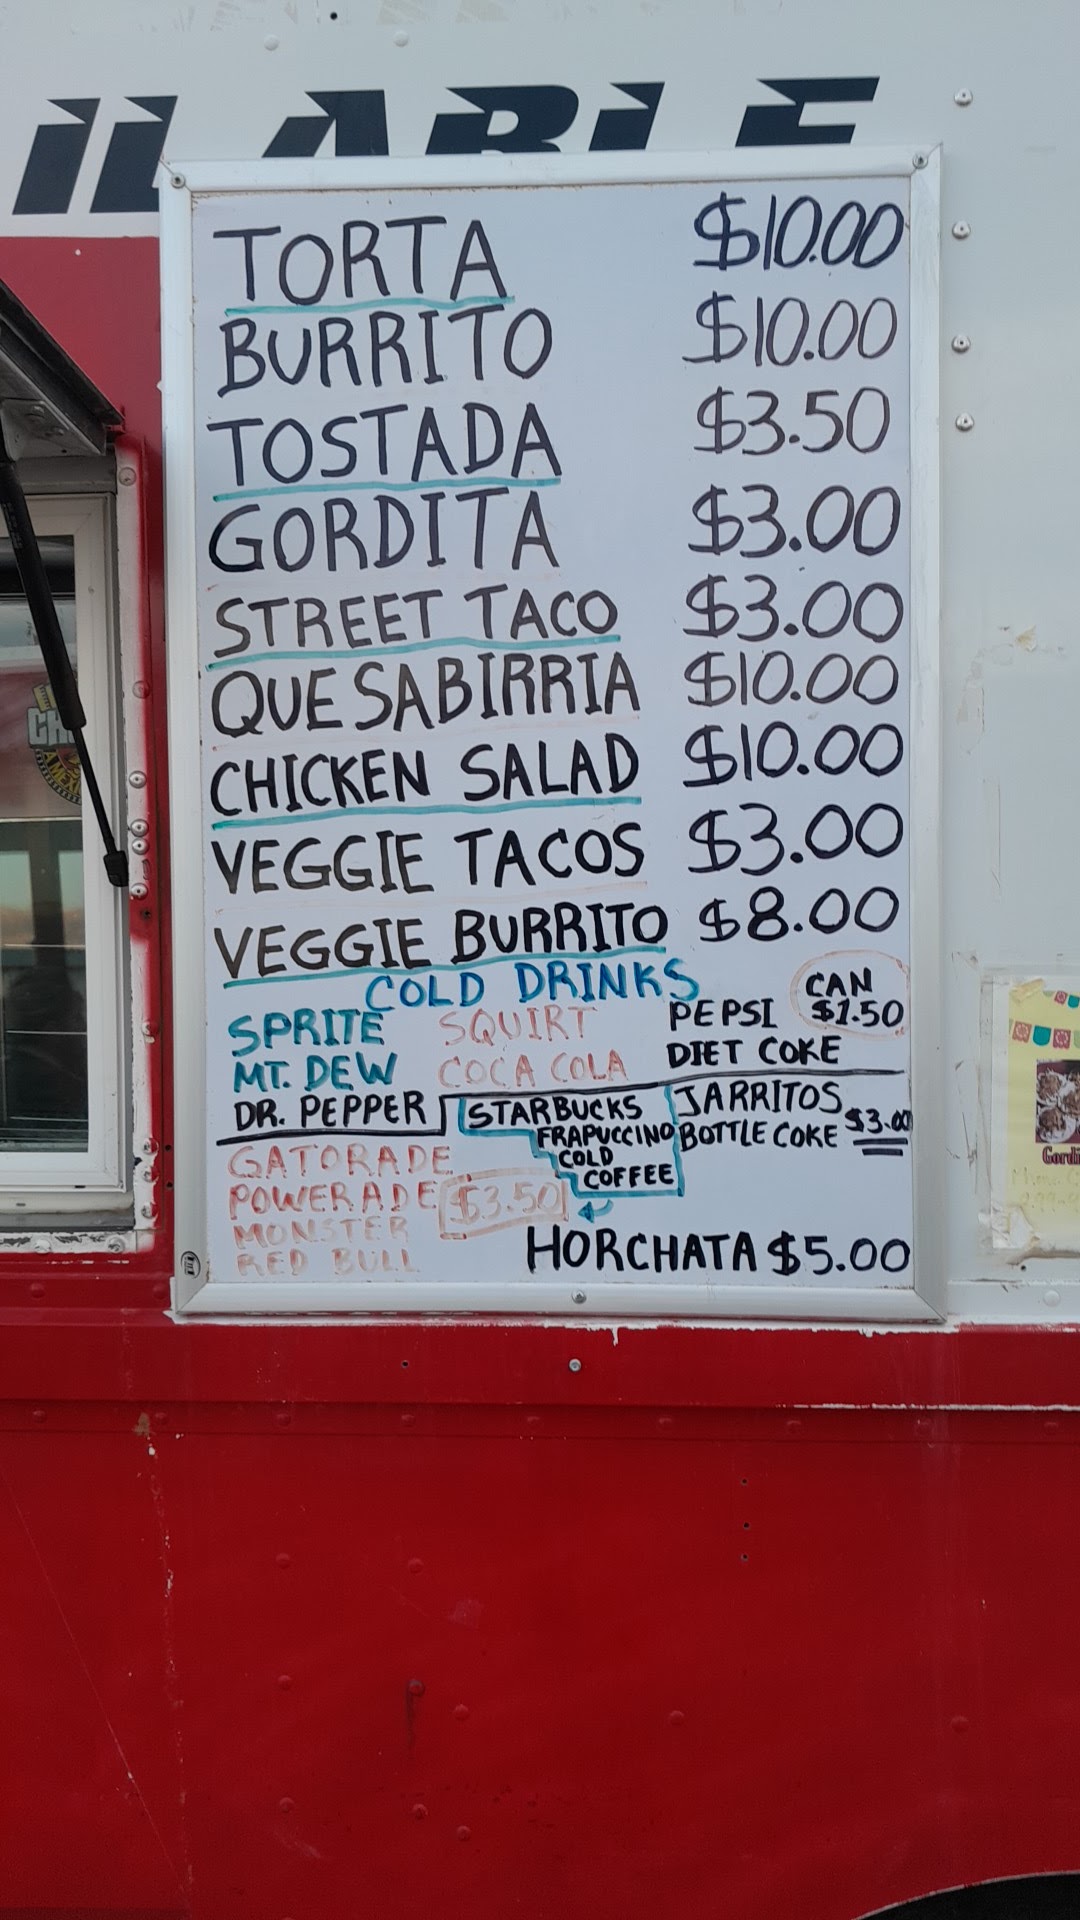 TORTA $10.00
BURRITO $10.00
TOSTADA $3.50
GORDITA $3.00
STREET TACO $3.00
QUESABIRRIA $10.00
CHICKEN SALAD $10.00
VEGGIE TACOS $3.00
VEGGIE BURRITO $8.00
COLD DRINKS
CAN
SPRITE SQUIRT PEPSI $1.50
MT. DEW COCA COLA DIET COKE
DR. PEPPER STARBUCKS JARRITOS $3.00
FRAPUCCINO BOTTLE COKE
COLD
COFFEE
GATORADE
POWERADE $3.50
MONSTER
RED BULL
HORCHATA $5.00